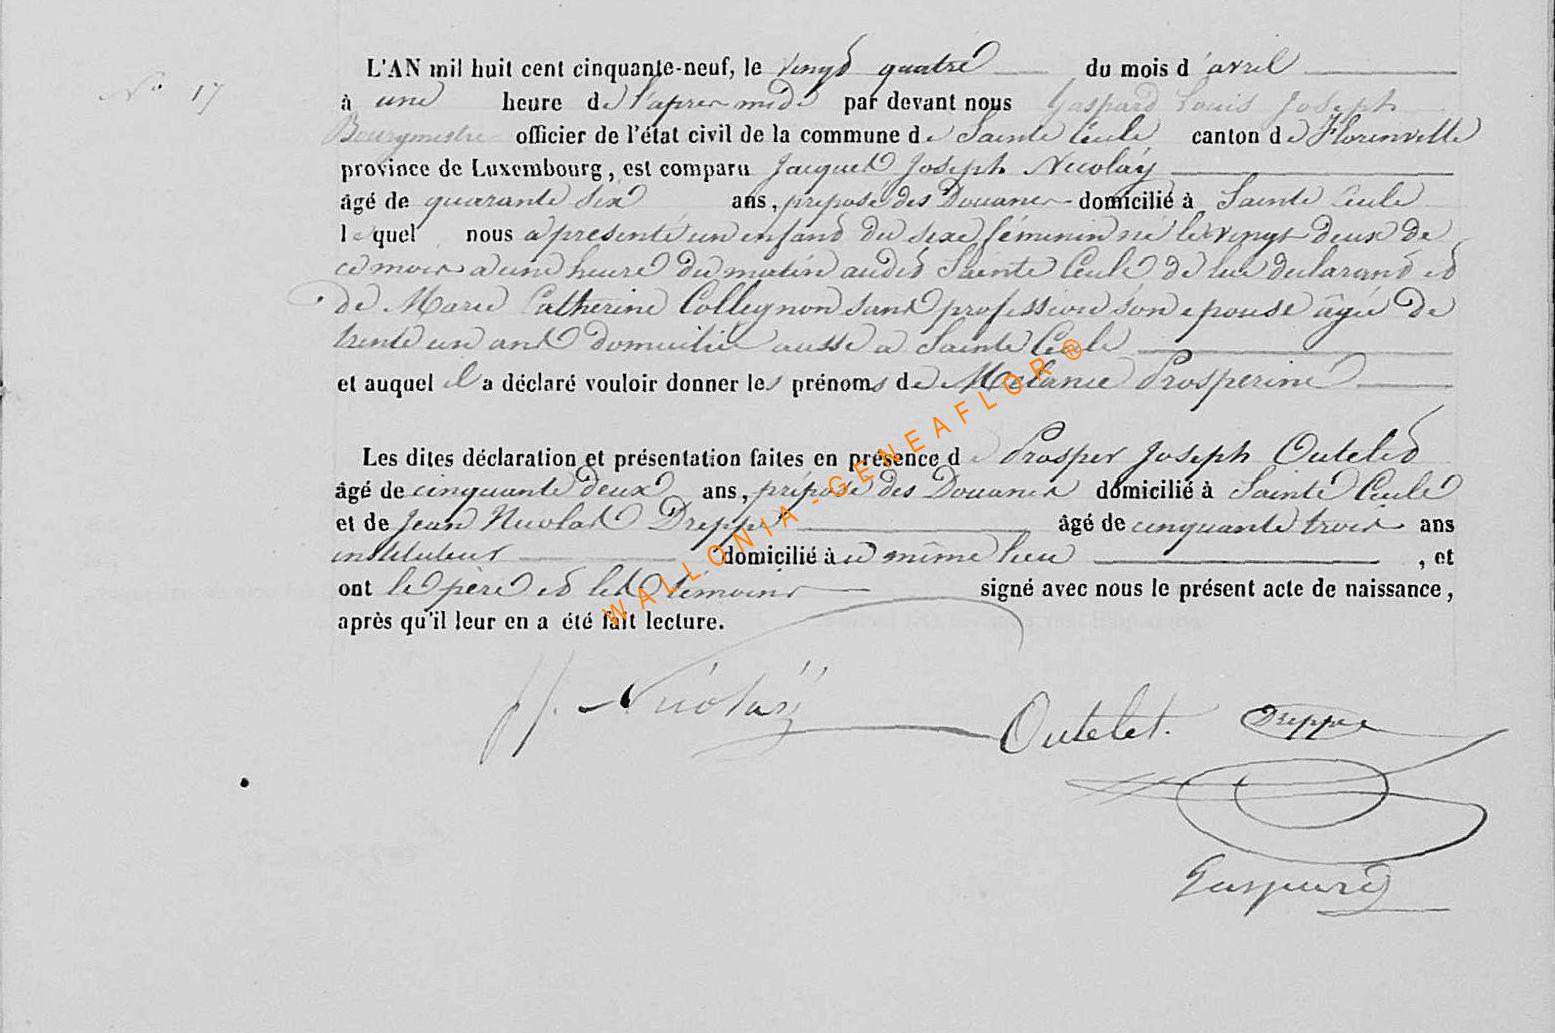 N° 17
L'AN mil huit cent cinquante-neuf, le vingt quatre du mois d'avril
à une heure de l'apres midi par devant nous Gaspard Louis Joseph
Bourgmestre officier de l'état civil de la commune de Sainte Cécile canton de Florenville
province de Luxembourg, est comparu Jacques Joseph Nicolaÿ
âgé de quarante six ans, préposé des Douanes domicilié à Sainte Cécile
lequel nous a présenté un enfant du sexe féminin né le vingt deux de
ce mois a une heure du matin audit Sainte Cecile de lui déclarant et
de Marie Catherine Collignon sans profession son epouse âgée de
trente un ans domiciliée aussi a Sainte Cecile
et auquel il a déclaré vouloir donner les prénoms de Melanie Prosperine
Les dites déclaration et présentation faites en présence de Prosper Joseph Outelet
âgé de cinquante deux ans, préposé des Douanes domicilié à Sainte Cécile
et de Jean Nicolas Dreppe âgé de cinquante trois ans
instituteur domicilié à u même lieu , et
ont le père et les témoins signé avec nous le présent acte de naissance,
après qu'il leur en a été fait lecture.
JJ. Nicolaÿ
Outelet. Dreppe
Gaspard
WALLONIA-GENEAFLOR®